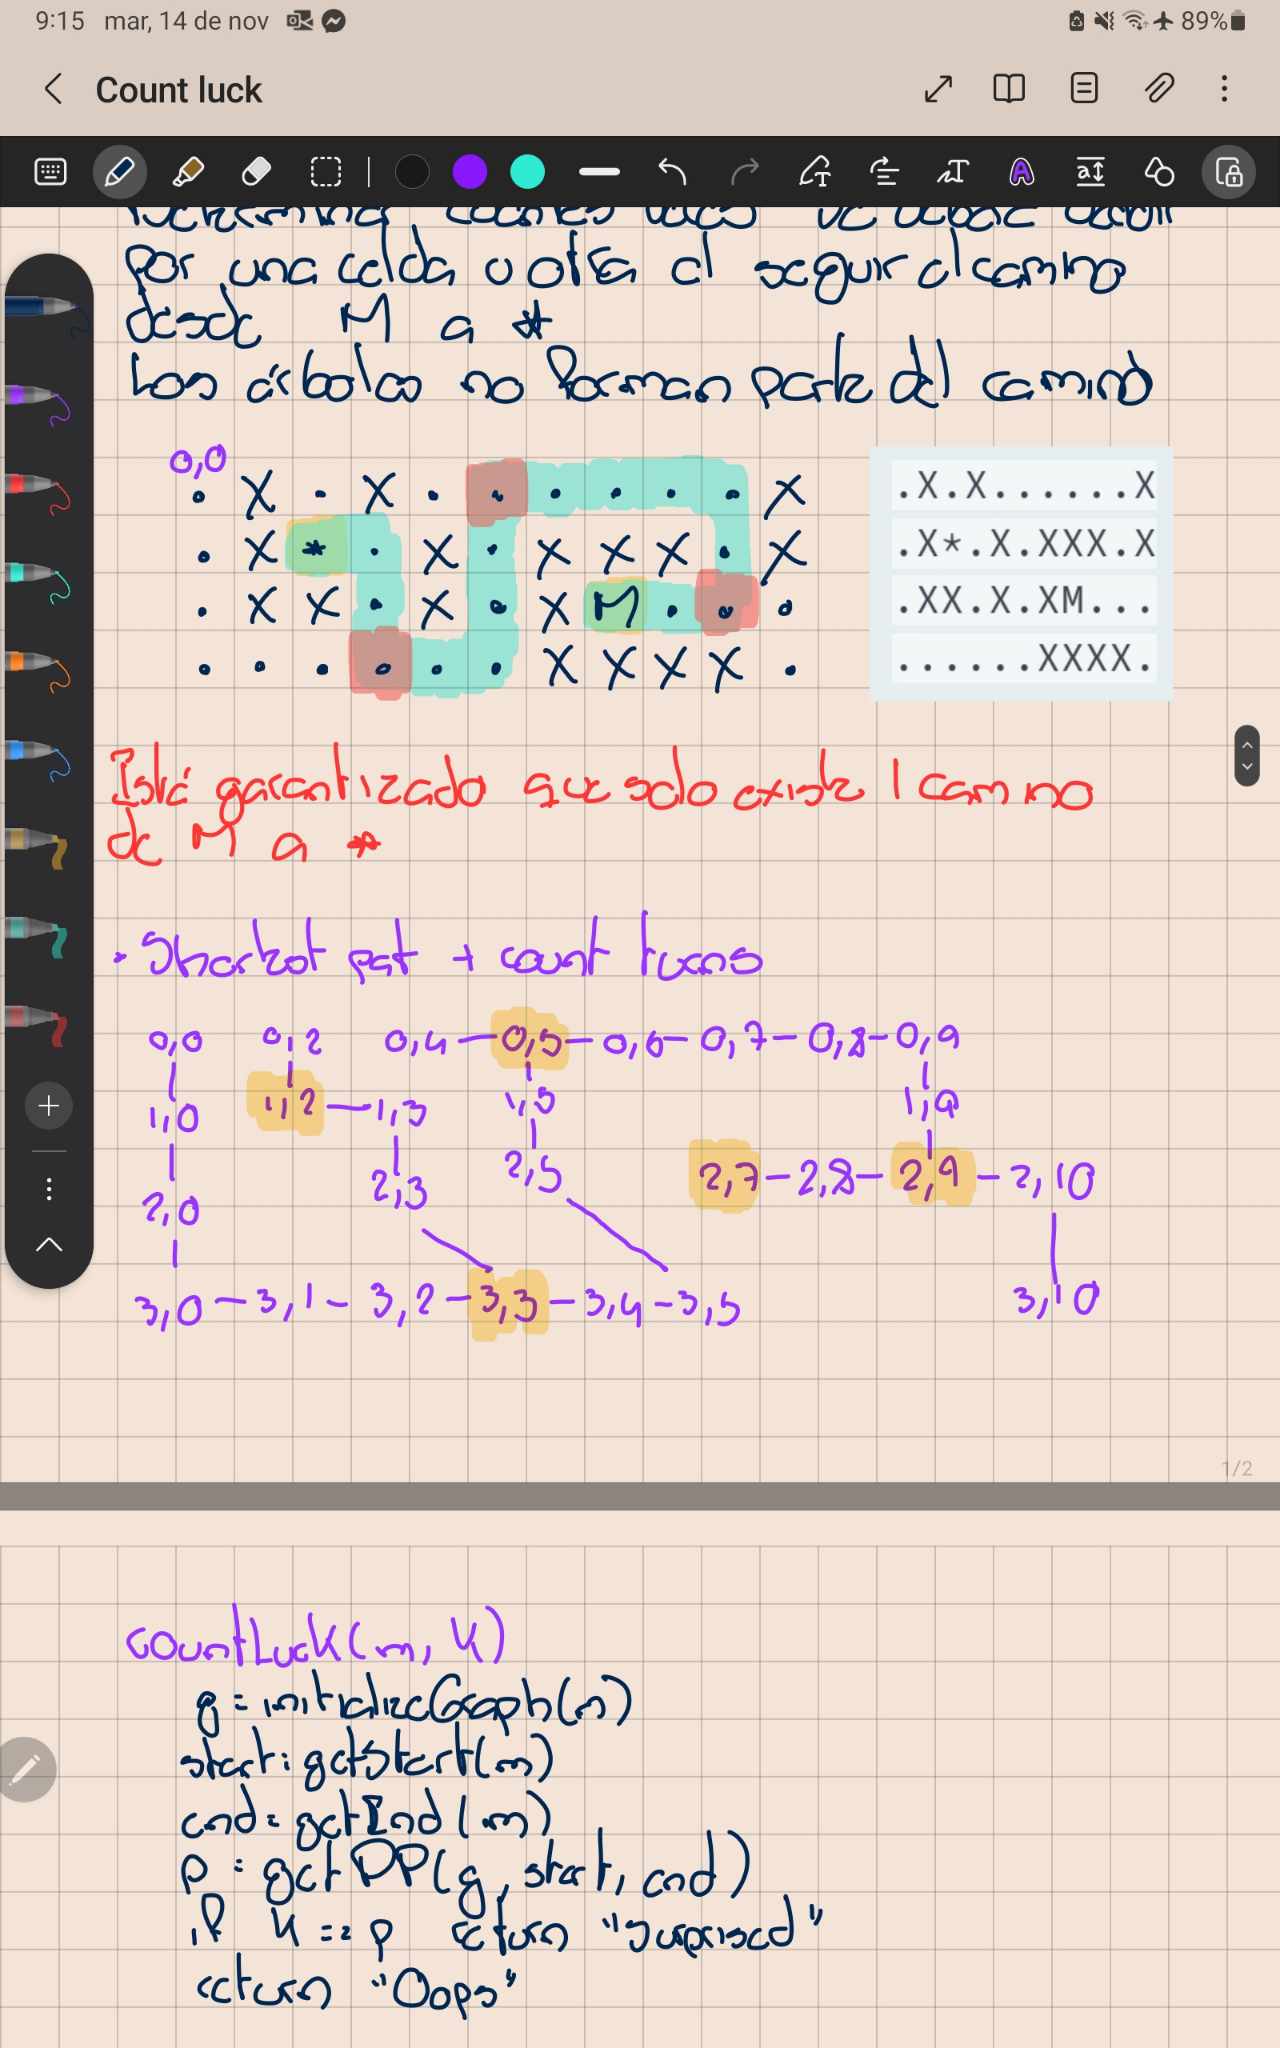 9:15 mar, 14 de nov 89%
Count luck
por una celda u otra al seguir el camino
desde M a *
Los árboles no forman parte del camino
0,0
. X . X . . . . . . X
. X * . X . X X X . X
. X X . X . X M . . .
. . . . . . X X X X .
.X.X......X
.X*.X.XXX.X
.XX.X.XM...
......XXXX.
Está garantizado que solo existe 1 camino
de M a *
· Shortest pat + count turns
0,0 0,2 0,4 — 0,5 — 0,6 — 0,7 — 0,8 — 0,9
1,0 1,2 — 1,3 1,5 1,9
2,0 2,3 2,5 2,7 — 2,8 — 2,9 — 2,10
3,0 — 3,1 — 3,2 — 3,3 — 3,4 — 3,5 3,10
1/2
countLuck(m, k)
g = initializeGraph(m)
start = getStart(m)
end = getEnd(m)
p = getDP(g, start, end)
if k == p return "Surprised"
return "Oops"